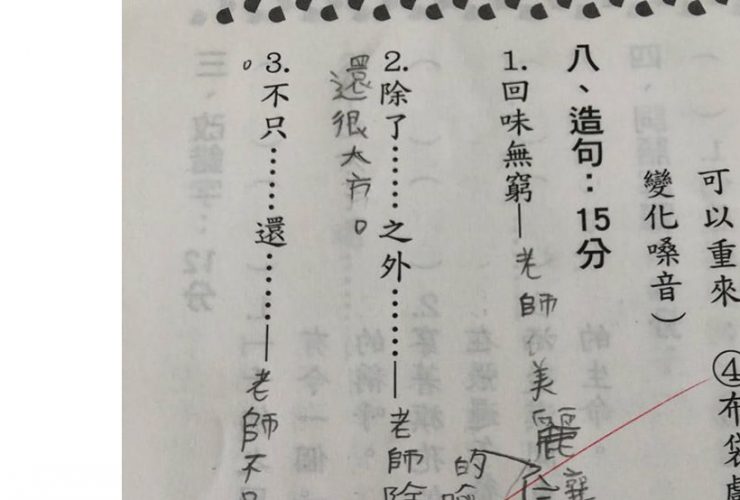 可以重來　④布袋戲
變化嗓音）
八、造句：15分
1.回味無窮—老師美麗
的
2.除了……之外……—老師除
還很大方。
3.不只……還……—老師不
。